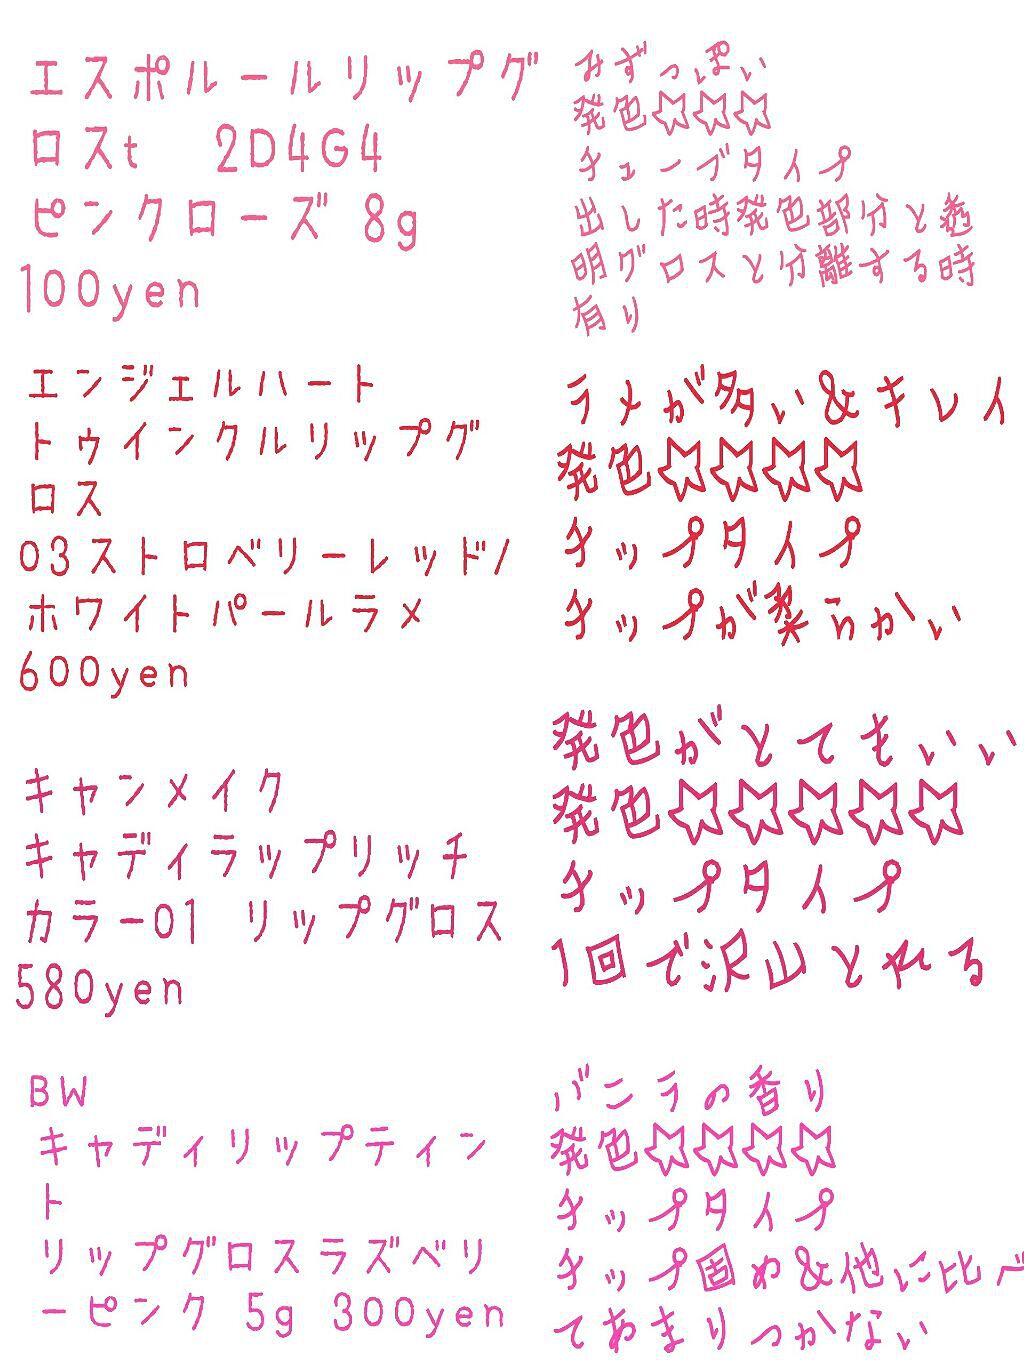 エスポルールリップグ
ロスt 2D4G4
ピンクローズ 8g
100yen
みずっぽい
発色☆☆☆
チューブタイプ
出した時発色部分と透
明グロスと分離する時
有り
エンジェルハート
トゥインクルリップグ
ロス
03ストロベリーレッド/
ホワイトパールラメ
600yen
ラメが多い&キレイ
発色☆☆☆☆
チップタイプ
チップが柔らかい
キャンメイク
キャディラップリッチ
カラー01 リップグロス
580yen
発色がとてもいい
発色☆☆☆☆☆
チップタイプ
1回で沢山とれる
BW
キャディリップティン
ト
リップグロスラズベリ
ーピンク 5g 300yen
バニラの香り
発色☆☆☆☆
チップタイプ
チップ固め&他に比べ
てあまりつかない